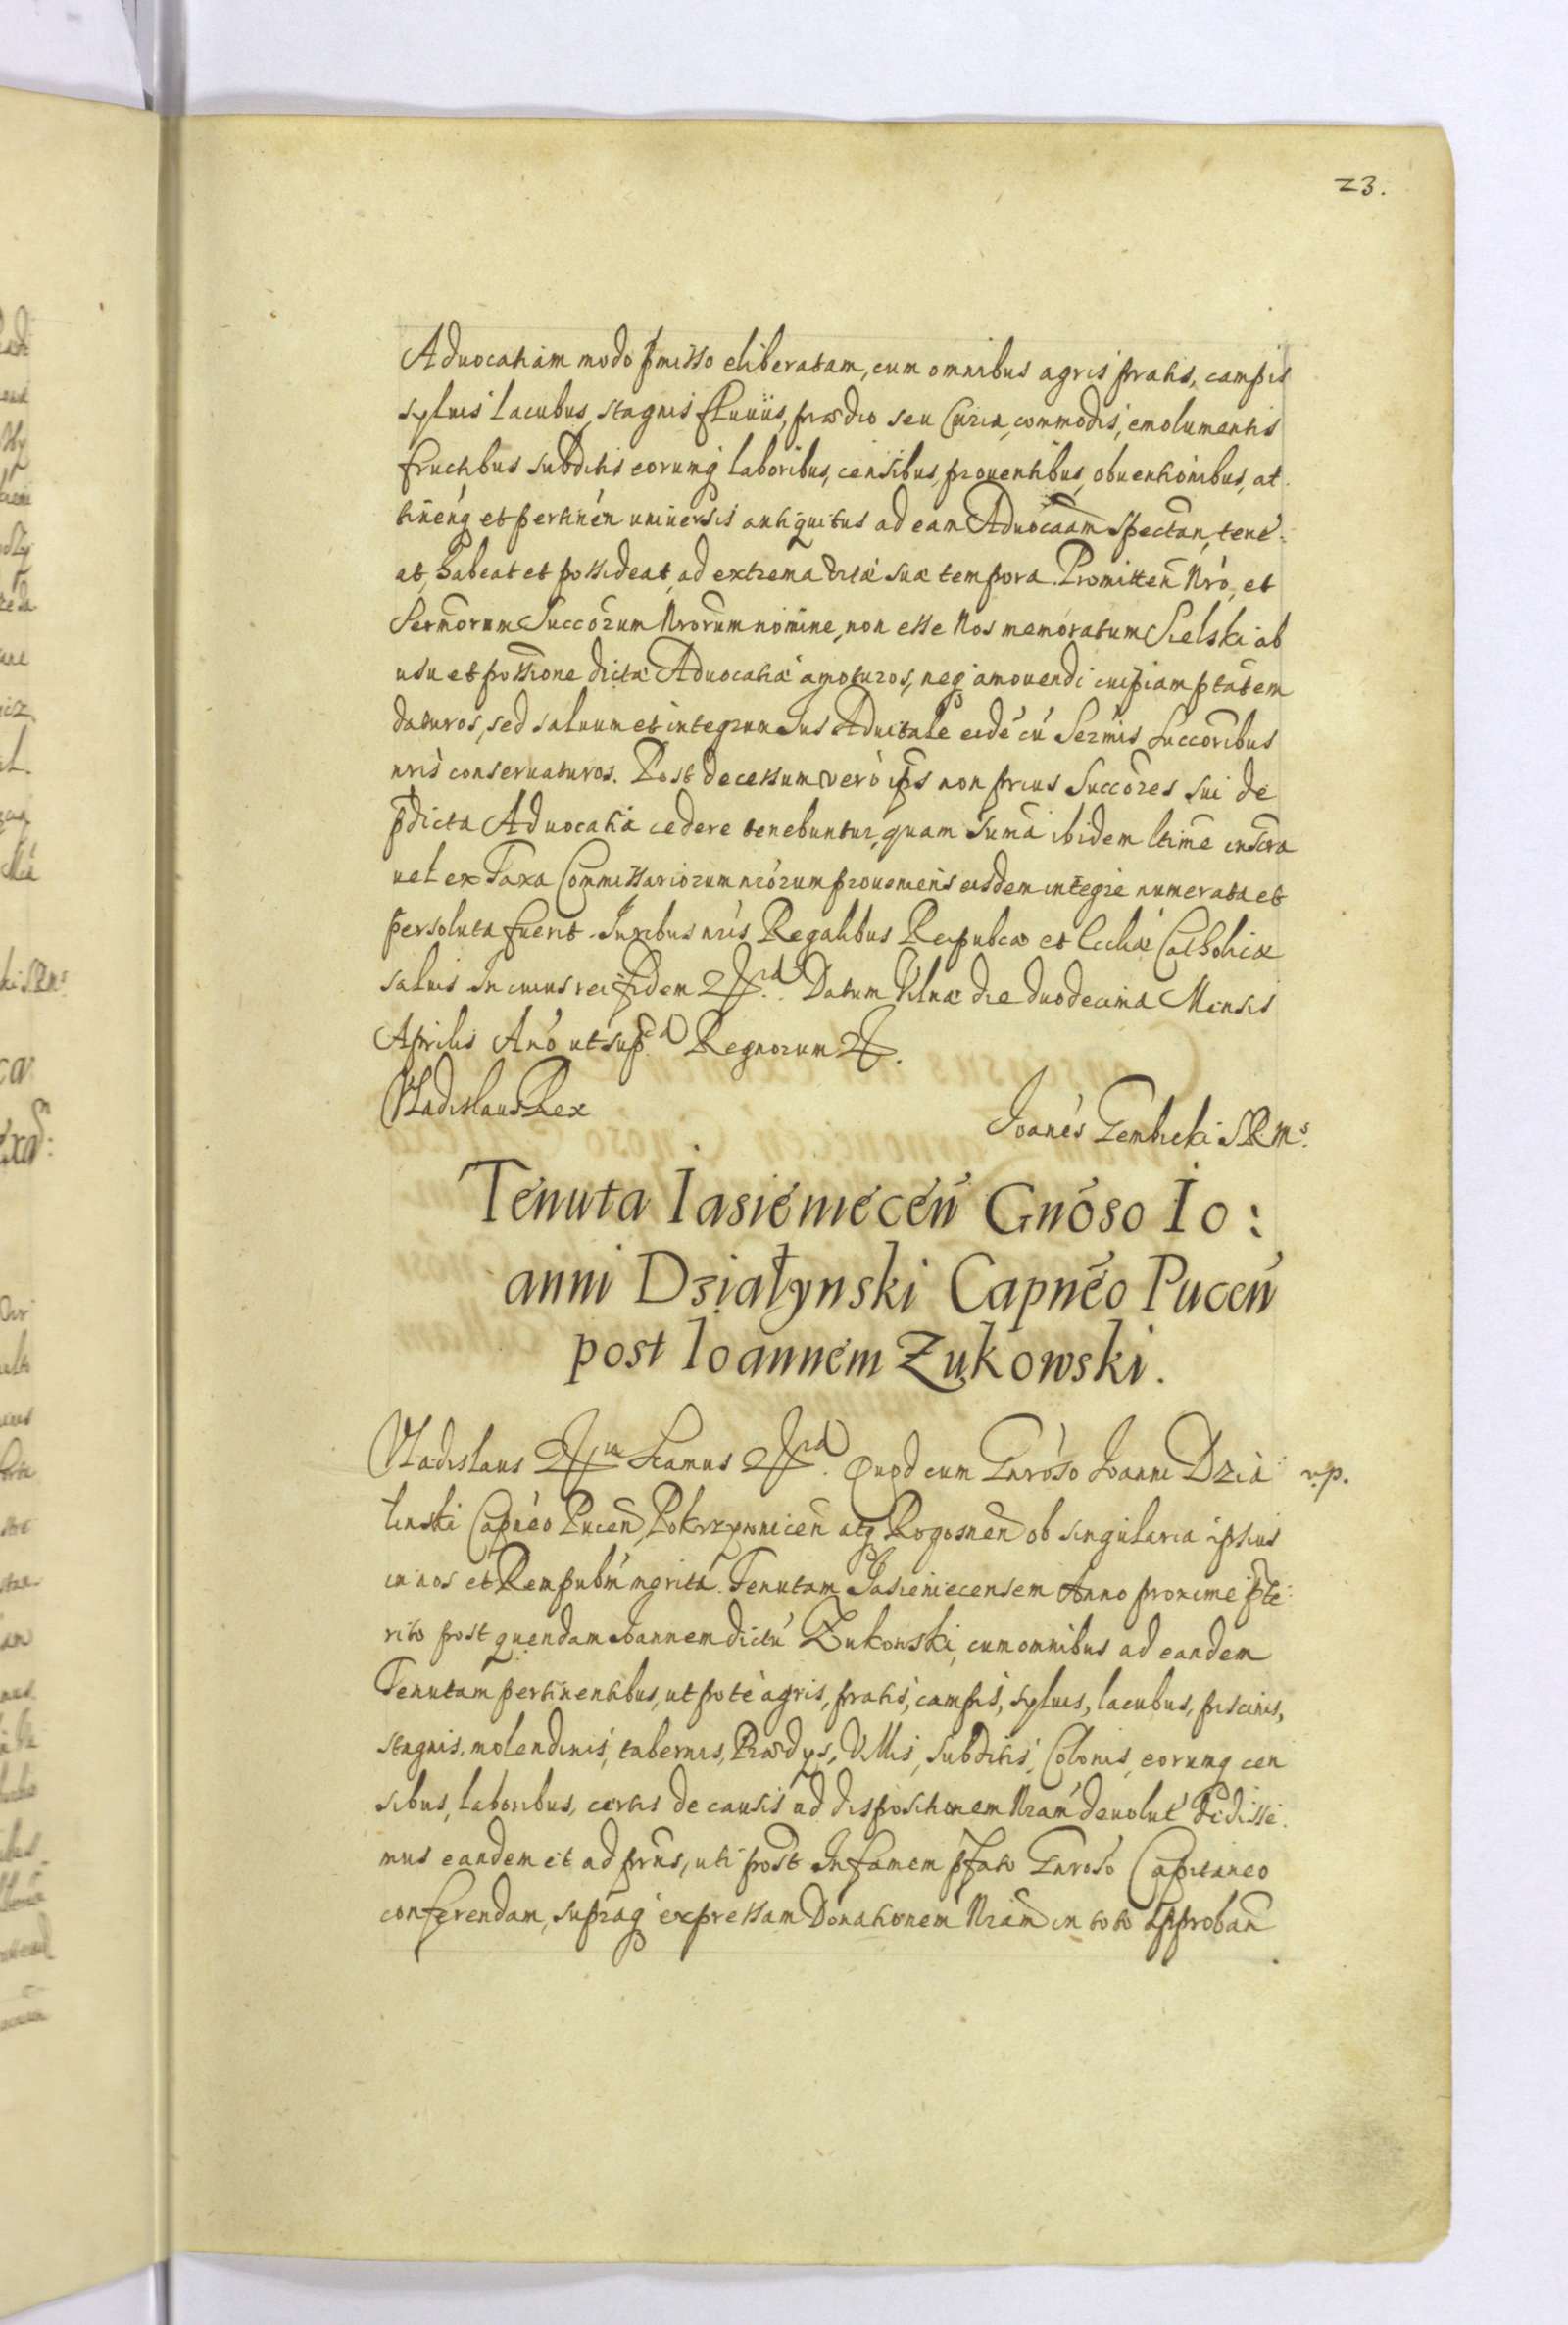 23.
Aduocatiam modo p̄misso eliberatam, cum omnibus agris pratis, campis
syluis lacubus, stagnis fluuiis, prædio seu Curia, commodis, emolumentis
fructibus subditis eorumq́ laboribus, censibus, prouentibus, obuentionibus, at
tinenq́ et pertinen̄ uniuersis antiquitus ad eam Aduocaām spectan̄, tene:
at, habeat et possideat, ad extrema vitæ suæ tempora. Promitten̄ Nr̄o, et
Sermōrum Succōrum Nrorum nomine, non esse Nos memoratum Sielski ab
usu et possione dictæ Aduocatiæ amoturos, neq́ amouendi cuipiam ptātem
daturos, sed saluum et integrum Jus Aduitale eidé cú Sermīs Succoribus
nris conseruaturos. Post decessum vero ip̄s non prius Succōres sui de
p̄dicta Aduocatia cedere tenebuntur, quam Sum̄a ibidem ltime inscra
uel ex Taxa Commissariorum nrorum proueniens eisdem integre numerata et
persoluta fuerit. Juribus nris Regalibus Reipubcæ et Eccliæ Catholicæ
saluis In cuius rei fidem Datum Vilnæ die duodecima Mensis
Aprilis Anō ut sup̄ Regnorum
Vladislaus Rex
Joanés Gembicki SRMs.
Tenuta Iasieniecen̄ Gnoso Io:
anni Działynski Capneo Pucen̄
post Ioannem Zukowski.
Vladislaus Scamus Quod cum Gnroso Joanni Dzia v.p.
linski Capneo Pucen̄, Pokrzywnicen̄ atq́ Rogosnen̄ ob singularia ipsius
in nos et Rempubm̄ mgrita. Tenutam Jasieniecensem Anno proxime p̄te:
rito post quendam Joannem dictú Zukowski, cum omnibus ad eandem
Tenutam pertinentibus, utpote agris, pratis, campis, syluis, lacubus, piscinis,
stagnis, molendinis, tabernis, Prædys, Villis, subditis, Colonis, eorumq́ cen
sibus, laboribus, certis de causis ad dispositionem Nram deuolut́ dedisse:
mus eandem et ad prn̄s, uti post Infamem p̄fato Gnroso Capitaneo
conferendam, supraq́ expressam Donationem Nram̄ in toto approban̄